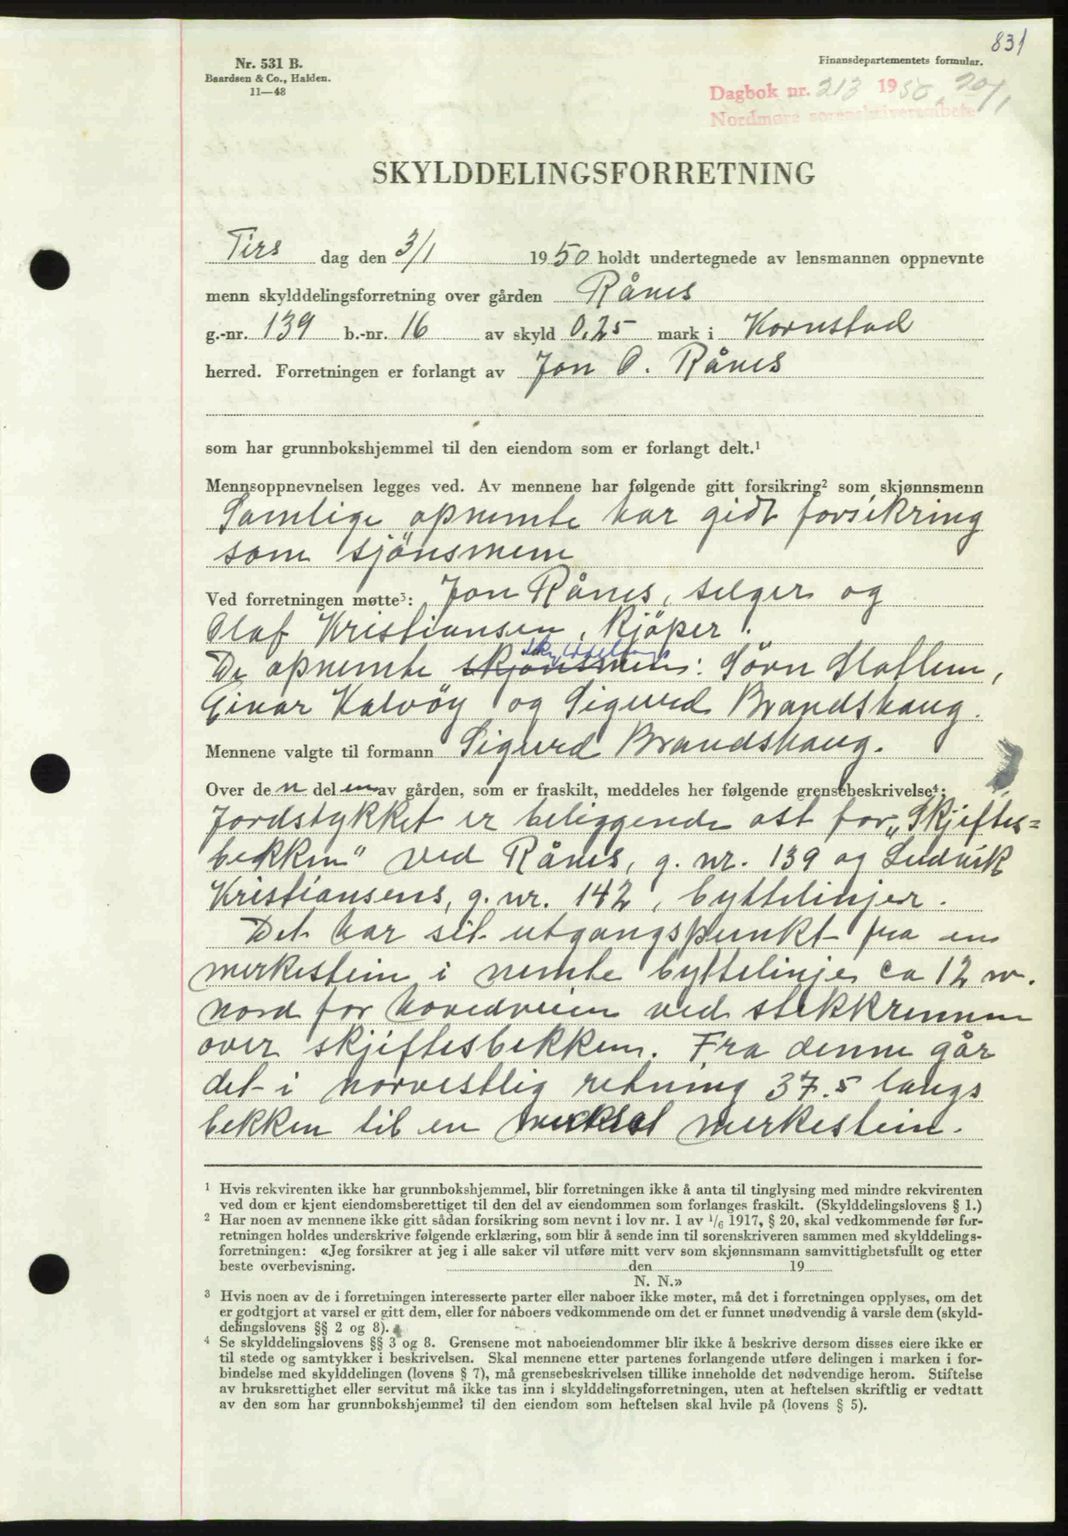 831
Nr. 531 B.
Baardsen & Co., Halden.
11—48
Finansdepartementets formular.
Dagbok nr. 213 1950, 20/1
Nordmøre sorenskriverembete
SKYLDDELINGSFORRETNING
Tirs dag den 3/1 1950 holdt undertegnede av lensmannen oppnevnte
menn skylddelingsforretning over gården Rånes
g.-nr. 139 b.-nr. 16 av skyld 0,25 mark i Kornstad
herred. Forretningen er forlangt av Jon O. Rånes
som har grunnbokshjemmel til den eiendom som er forlangt delt.¹
Mennsoppnevnelsen legges ved. Av mennene har følgende gitt forsikring² som skjønnsmenn
Samlige opnemte har gidt forsikring
som sjönsmem
Ved forretningen møtte³: Jon Rånes, selger og
Olaf Kristiansen, kjöper.
De opnemte skjönsmem: Sörn Staflem,
Einar Kalvöy og Sigurd Brandshaug.
Mennene valgte til formann Sigurd Brandshaug.
Over den delen av gården, som er fraskilt, meddeles her følgende grensebeskrivelse⁴:
Jordstykket er beliggende ost for „Skjeftes=
bekken" ved Rånes, g. nr. 139 og Ludvik
Kristiansens, g. nr. 142, byttelinjer.
Det har sit utgangspunkt fra en
merkestein i nemte byttelinje ca 12 m.
nord for hovedveien ved stekkrennen
over skjeftesbekken. Fra denne går
det i norvestlig retning 37.5 langs
bekken til en merkestein.
¹ Hvis rekvirenten ikke har grunnbokshjemmel, blir forretningen ikke å anta til tinglysing med mindre rekvirenten
ved dom er kjent eiendomsberettiget til den del av eiendommen som forlanges fraskilt. (Skylddelingslovens § 1.)
² Har noen av mennene ikke gitt sådan forsikring som nevnt i lov nr. 1 av 1/6 1917, § 20, skal vedkommende før for-
retningen holdes underskrive følgende erklæring, som blir å sende inn til sorenskriveren sammen med skylddelings-
forretningen: «Jeg forsikrer at jeg i alle saker vil utføre mitt verv som skjønnsmann samvittighetsfullt og etter
beste overbevisning. den 19
N. N.»
³ Hvis noen av de i forretningen interesserte parter eller naboer ikke møter, må det i forretningen opplyses, om det
er godtgjort at varsel er gitt dem, eller for naboers vedkommende om det er funnet unødvendig å varsle dem (skyld-
delingslovens §§ 2 og 8).
⁴ Se skylddelingslovens §§ 3 og 8. Grensene mot naboeiendommer blir ikke å beskrive dersom disses eiere ikke er
til stede og samtykker i beskrivelsen. Skal mennene etter partenes forlangende utføre delingen i marken i for-
bindelse med skylddelingen (lovens § 7), må grensebeskrivelsen tillike inneholde det nødvendige herom. Stiftelse
av bruksrettighet eller servitut må ikke tas inn i skylddelingsforretningen, uten at heftelsen skriftlig er vedtatt
av den som har grunnbokshjemmel til den eiendom som heftelsen skal hvile på (lovens § 5).